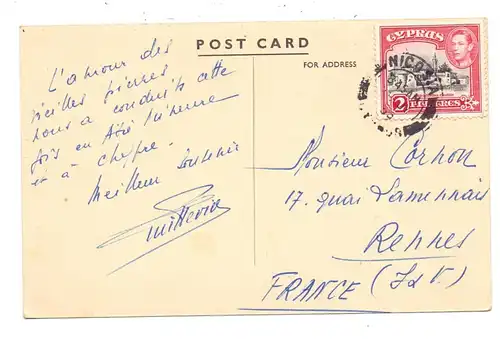 POST CARD
FOR ADDRESS
L'amour des
vieilles pierres
nous a conduits cette
fois en Asie Mineure
et à Chypre.
Meilleur souvenir
CYPRUS
2 PIASTRES
NICOSIA
Monsieur Cornon
17. quai Lamennais
Rennes
FRANCE (I&V.)